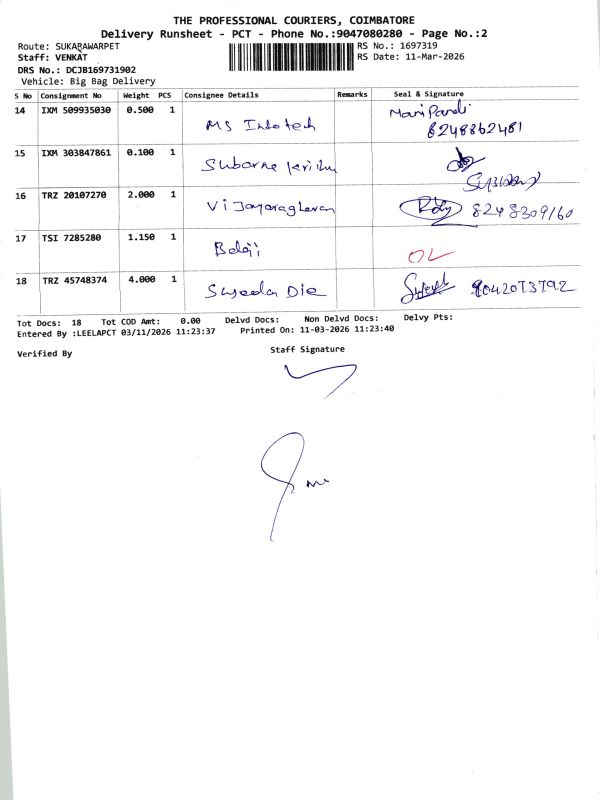 THE PROFESSIONAL COURIERS, COIMBATORE
Delivery Runsheet - PCT - Phone No.:9047080280 - Page No.:2
Route: SUKARAWARPET RS No.: 1697319
Staff: VENKAT RS Date: 11-Mar-2026
DRS No.: DCJB169731902
Vehicle: Big Bag Delivery
S No Consignment No Weight PCS Consignee Details Remarks Seal & Signature
14 IXM 509935030 0.500 1 MS Infotech Mari Pandi
8248862481
15 IXM 303847861 0.100 1 Suborne
16 TRZ 20107270 2.000 1 Vijayaraghavan 8248309160
17 TSI 7285280 1.150 1 Balaji OL
18 TRZ 45748374 4.000 1 Sujeeda Die 9042073792
Tot Docs: 18 Tot COD Amt: 0.00 Delvd Docs: Non Delvd Docs: Delvy Pts:
Entered By :LEELAPCT 03/11/2026 11:23:37 Printed On: 11-03-2026 11:23:40
Verified By Staff Signature